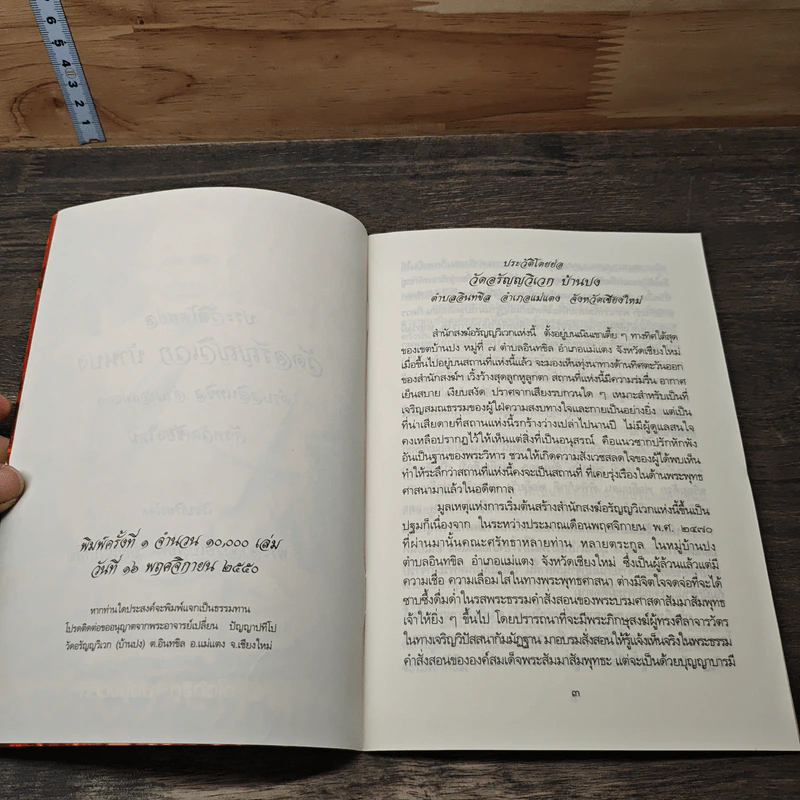 6
5
4
3
2
1
พิมพ์ครั้งที่ ๑ จำนวน ๑๐,๐๐๐ เล่ม
วันที่ ๑๖ พฤศจิกายน ๒๕๕๐
หากท่านใดประสงค์จะพิมพ์แจกเป็นธรรมทาน
โปรดติดต่อขออนุญาตจากพระอาจารย์เปลี่ยน ปัญญาปทีโป
วัดอรัญญวิเวก (บ้านปง) ต.อินทขิล อ.แม่แตง จ.เชียงใหม่
ประวัติโดยย่อ
วัดอรัญญวิเวก บ้านปง
ตำบลอินทขิล อำเภอแม่แตง จังหวัดเชียงใหม่
สำนักสงฆ์อรัญญวิเวกแห่งนี้ ตั้งอยู่บนเนินเขาเตี้ย ๆ ทางทิศใต้สุด
ของเขตบ้านปง หมู่ที่ ๗ ตำบลอินทขิล อำเภอแม่แตง จังหวัดเชียงใหม่
เมื่อขึ้นไปอยู่บนสถานที่แห่งนี้แล้ว จะมองเห็นทุ่งนาทางด้านทิศตะวันออก
ของสำนักสงฆ์ฯ เวิ้งว้างสุดลูกหูลูกตา สถานที่แห่งนี้มีความร่มรื่น อากาศ
เย็นสบาย เงียบสงัด ปราศจากเสียงรบกวนใด ๆ เหมาะสำหรับเป็นที่
เจริญสมณธรรมของผู้ใฝ่ความสงบทางใจและกายเป็นอย่างยิ่ง แต่เป็น
ที่น่าเสียดายที่สถานแห่งนี้รกร้างว่างเปล่าไปนานปี ไม่มีผู้ดูแลสนใจ
คงเหลือปรากฏไว้ให้เห็นแต่สิ่งที่เป็นอนุสรณ์ คือแนวซากปรักหักพัง
อันเป็นฐานของพระวิหาร ชวนให้เกิดความสังเวชสลดใจของผู้ได้พบเห็น
ทำให้ระลึกว่าสถานที่แห่งนี้คงจะเป็นสถานที่ ที่เคยรุ่งเรืองในด้านพระพุทธ
ศาสนามาแล้วในอดีตกาล
มูลเหตุแห่งการเริ่มต้นสร้างสำนักสงฆ์อรัญญวิเวกแห่งนี้ขึ้นเป็น
ปฐมก็เนื่องจาก ในระหว่างประมาณเดือนพฤศจิกายน พ.ศ. ๒๔๗๐
ที่ผ่านมานั้นคณะศรัทธาหลายท่าน หลายตระกูล ในหมู่บ้านปง
ตำบลอินทขิล อำเภอแม่แตง จังหวัดเชียงใหม่ ซึ่งเป็นผู้ล้วนแล้วแต่มี
ความเชื่อ ความเลื่อมใสในทางพระพุทธศาสนา ต่างมีจิตใจจดจ่อที่จะได้
ซาบซึ้งดื่มด่ำในรสพระธรรมคำสั่งสอนของพระบรมศาสดาสัมมาสัมพุทธ
เจ้าให้ยิ่ง ๆ ขึ้นไป โดยปรารถนาที่จะมีพระภิกษุสงฆ์ผู้ทรงศีลาจารวัตร
ในทางเจริญวิปัสสนากัมมัฏฐาน มาอบรมสั่งสอนให้รู้แจ้งเห็นจริงในพระธรรม
คำสั่งสอนขององค์สมเด็จพระสัมมาสัมพุทธะ แต่จะเป็นด้วยบุญญาบารมี
๓